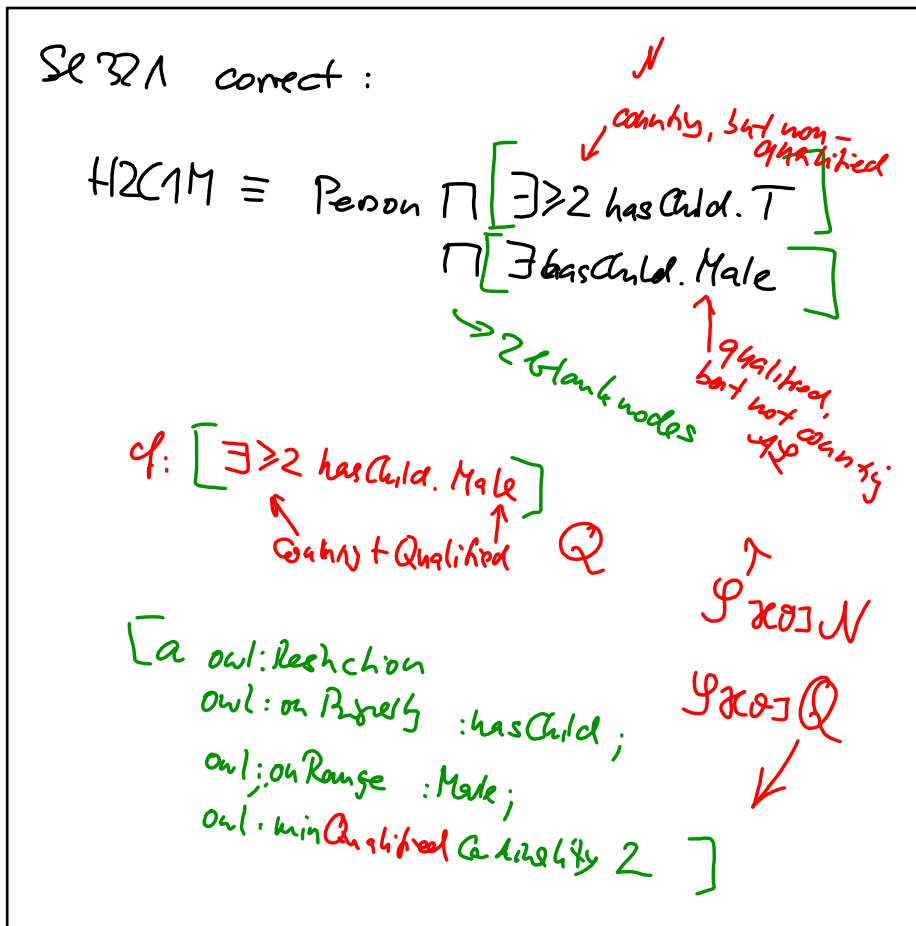 Sl 321 correct :
N
counting, but non-
qualified
H2C1M ≡ Person ⊓ [∃≥2 hasChild.⊤]
⊓ [∃hasChild.Male]
→ 2 blank nodes
qualified,
but not counting
ALC
cf: [∃≥2 hasChild.Male]
Counting + Qualified Q
[a owl:Restriction
owl:onProperty :hasChild;
owl:onRange :Male;
owl:minQualifiedCardinality 2 ]
SHOIN
SHOIQ